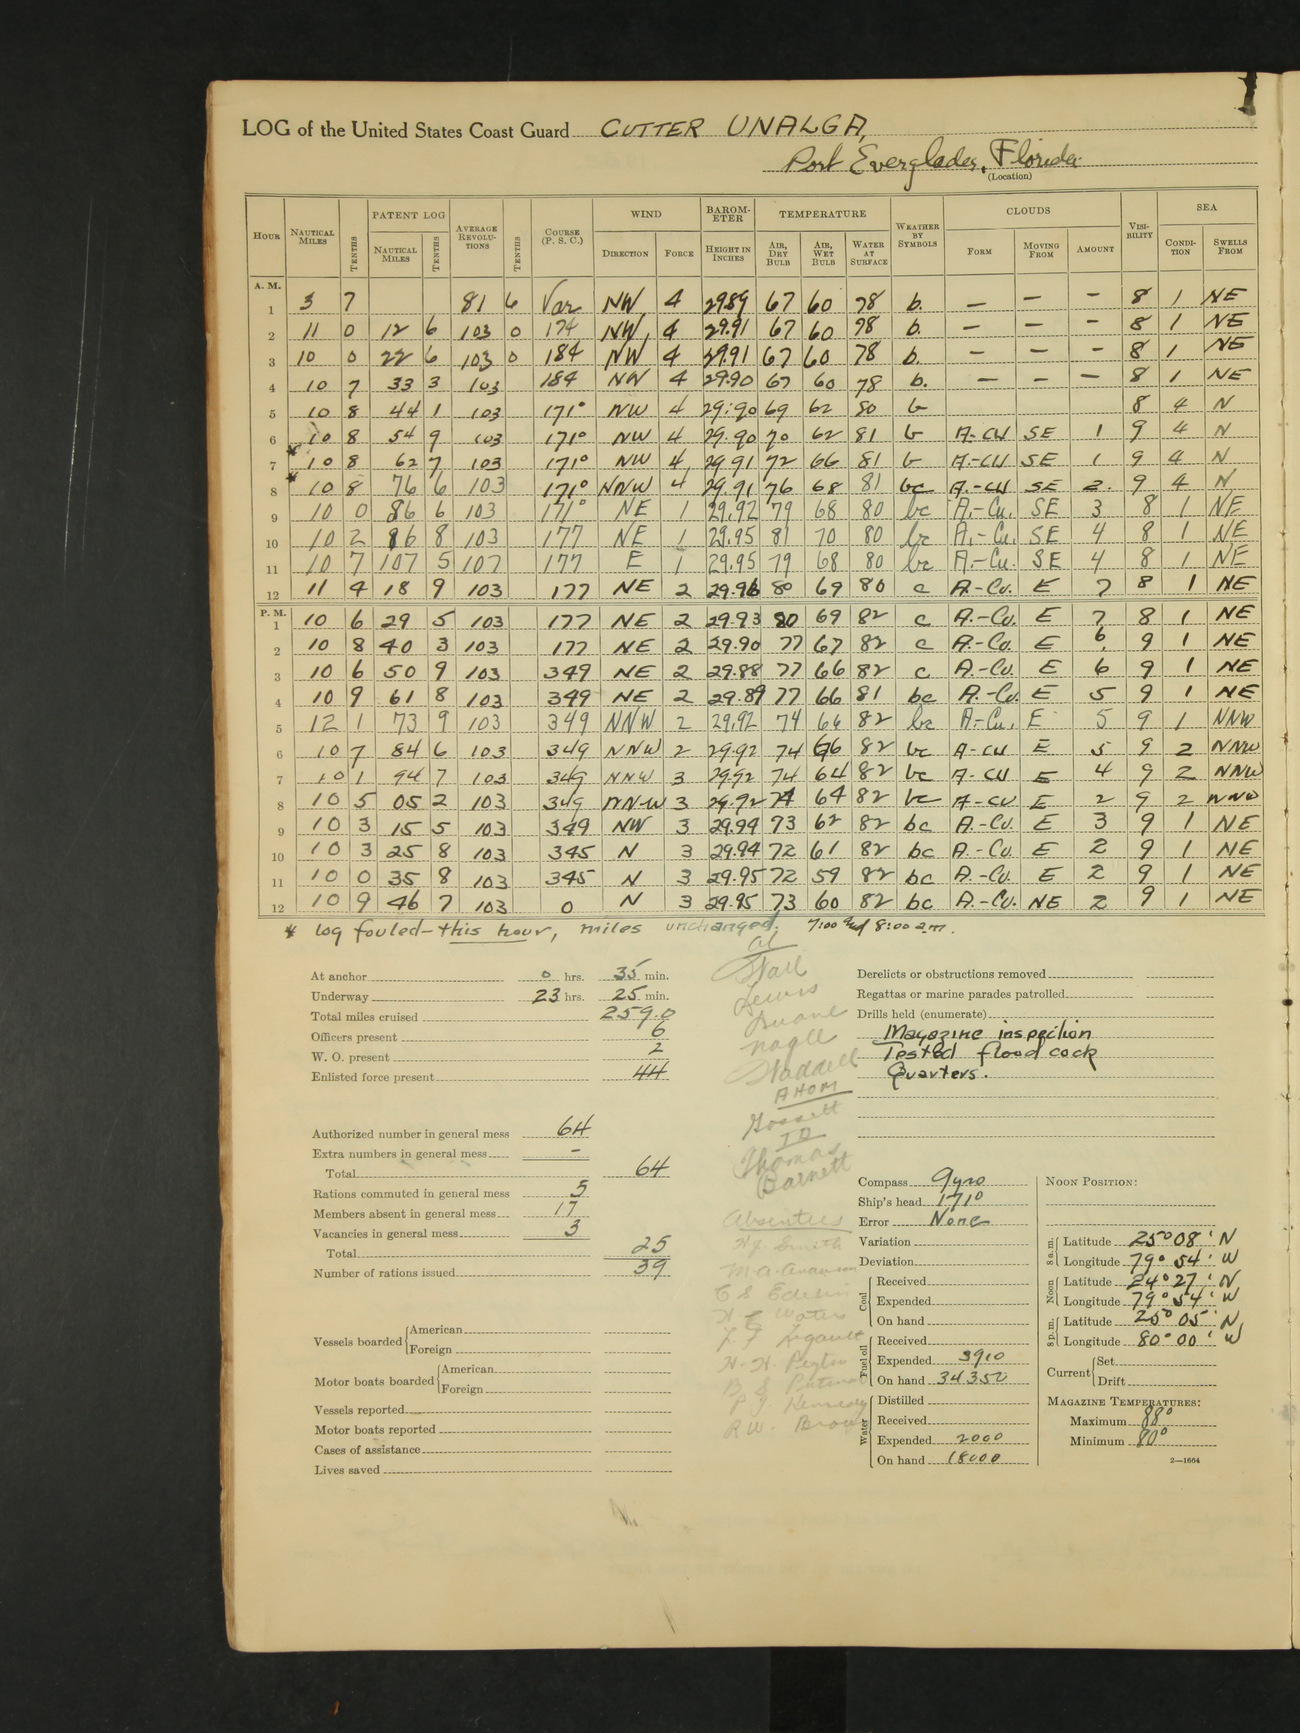 LOG of the United States Coast Guard CUTTER UNALGA,
Port Everglades, Florida
(Location)
HOUR NAUTICAL MILES TENTHS PATENT LOG NAUTICAL MILES TENTHS AVERAGE REVOLUTIONS TENTHS COURSE (P. S. C.) WIND DIRECTION FORCE BAROMETER HEIGHT IN INCHES TEMPERATURE AIR, DRY BULB AIR, WET BULB WATER AT SURFACE WEATHER BY SYMBOLS CLOUDS FORM MOVING FROM AMOUNT VISIBILITY SEA CONDITION SWELLS FROM
A. M.
1 3 7 81 6 Var NW 4 29.89 67 60 78 b. — — — 8 1 NE
2 11 0 12 6 103 0 174 NW 4 29.91 67 60 78 b. — — — 8 1 NE
3 10 0 22 6 103 0 184 NW 4 29.91 67 60 78 b. — — — 8 1 NE
4 10 7 33 3 103 184 NW 4 29.90 67 60 78 b. — — — 8 1 NE
5 10 8 44 1 103 171° NW 4 29.90 69 62 80 b 8 4 N
6 10 8 54 9 103 171° NW 4 29.90 70 62 81 b A.-CU SE 1 9 4 N
* 7 10 8 62 7 103 171° NW 4 29.91 72 66 81 b A.-CU SE 1 9 4 N
* 8 10 8 76 6 103 171° NNW 4 29.91 76 68 81 bc A.-CU SE 2. 9 4 N
9 10 0 86 6 103 171° NE 1 29.92 79 68 80 bc A.-Cu. SE 3 8 1 NE
10 10 2 96 8 103 177 NE 1 29.95 81 70 80 bc A.-Cu. SE 4 8 1 NE
11 10 7 107 5 107 177 E 1 29.95 79 68 80 bc A.-Cu. SE 4 8 1 NE
12 11 4 18 9 103 177 NE 2 29.96 80 69 80 c A-Cu. E 7 8 1 NE
P. M.
1 10 6 29 5 103 177 NE 2 29.93 80 69 82 c A.-Cu. E 7 8 1 NE
2 10 8 40 3 103 177 NE 2 29.90 77 67 82 c A.-Cu. E 6 9 1 NE
3 10 6 50 9 103 349 NE 2 29.88 77 66 82 c A.-Cu. E 6 9 1 NE
4 10 9 61 8 103 349 NE 2 29.89 77 66 81 bc A.-Cu. E 5 9 1 NE
5 12 1 73 9 103 349 NNW 2 29.92 74 66 82 bc A-Cu. E 5 9 1 NNW
6 10 7 84 6 103 349 NNW 2 29.92 74 66 82 bc A-CU E 5 9 2 NNW
7 10 1 94 7 103 349 NNW 3 29.92 74 64 82 bc A-CU E 4 9 2 NNW
8 10 5 05 2 103 349 NNW 3 29.92 74 64 82 bc A-CU E 2 9 2 NNW
9 10 3 15 5 103 349 NW 3 29.94 73 62 82 bc A.-Cu. E 3 9 1 NE
10 10 3 25 8 103 345 N 3 29.94 72 61 82 bc A.-Cu. E 2 9 1 NE
11 10 0 35 8 103 345 N 3 29.95 72 59 82 bc A.-Cu. E 2 9 1 NE
12 10 9 46 7 103 0 N 3 29.95 73 60 82 bc A.-Cu. NE 2 9 1 NE
* Log fouled-this hour, miles unchanged. 7:00 and 8:00 a.m.
At anchor 0 hrs. 35 min.
Underway 23 hrs. 25 min.
Total miles cruised 259.0
Officers present 6
W. O. present 2
Enlisted force present 44
Authorized number in general mess 64
Extra numbers in general mess -
Total 64
Rations commuted in general mess 5
Members absent in general mess 17
Vacancies in general mess 3
Total 25
Number of rations issued 39
Vessels boarded American
Foreign
Motor boats boarded American
Foreign
Vessels reported
Motor boats reported
Cases of assistance
Lives saved
al
Stall
Lewis
Duane
Nagle
Waddell
AHOM
Gossett
ID
Thomas
Barnett
Absentees
H J Smith
P J Kennedy
R W. Brown
Derelicts or obstructions removed
Regattas or marine parades patrolled
Drills held (enumerate)
Magazine inspection
Tested flood cock
Quarters.
Compass Gyro
Ship's head 171°
Error None
Variation
Deviation
Coal Received
Expended
On hand
Fuel oil Received
Expended 3910
On hand 34350
Water Distilled
Received
Expended 2000
On hand 18000
NOON POSITION:
8 a.m. Latitude 25° 08' N
Longitude 79° 54' W
Noon Latitude 24° 27' N
Longitude 79° 54' W
8 p.m. Latitude 25° 05' N
Longitude 80° 00' W
Current Set
Drift
MAGAZINE TEMPERATURES:
Maximum 88°
Minimum 80°
2—1664